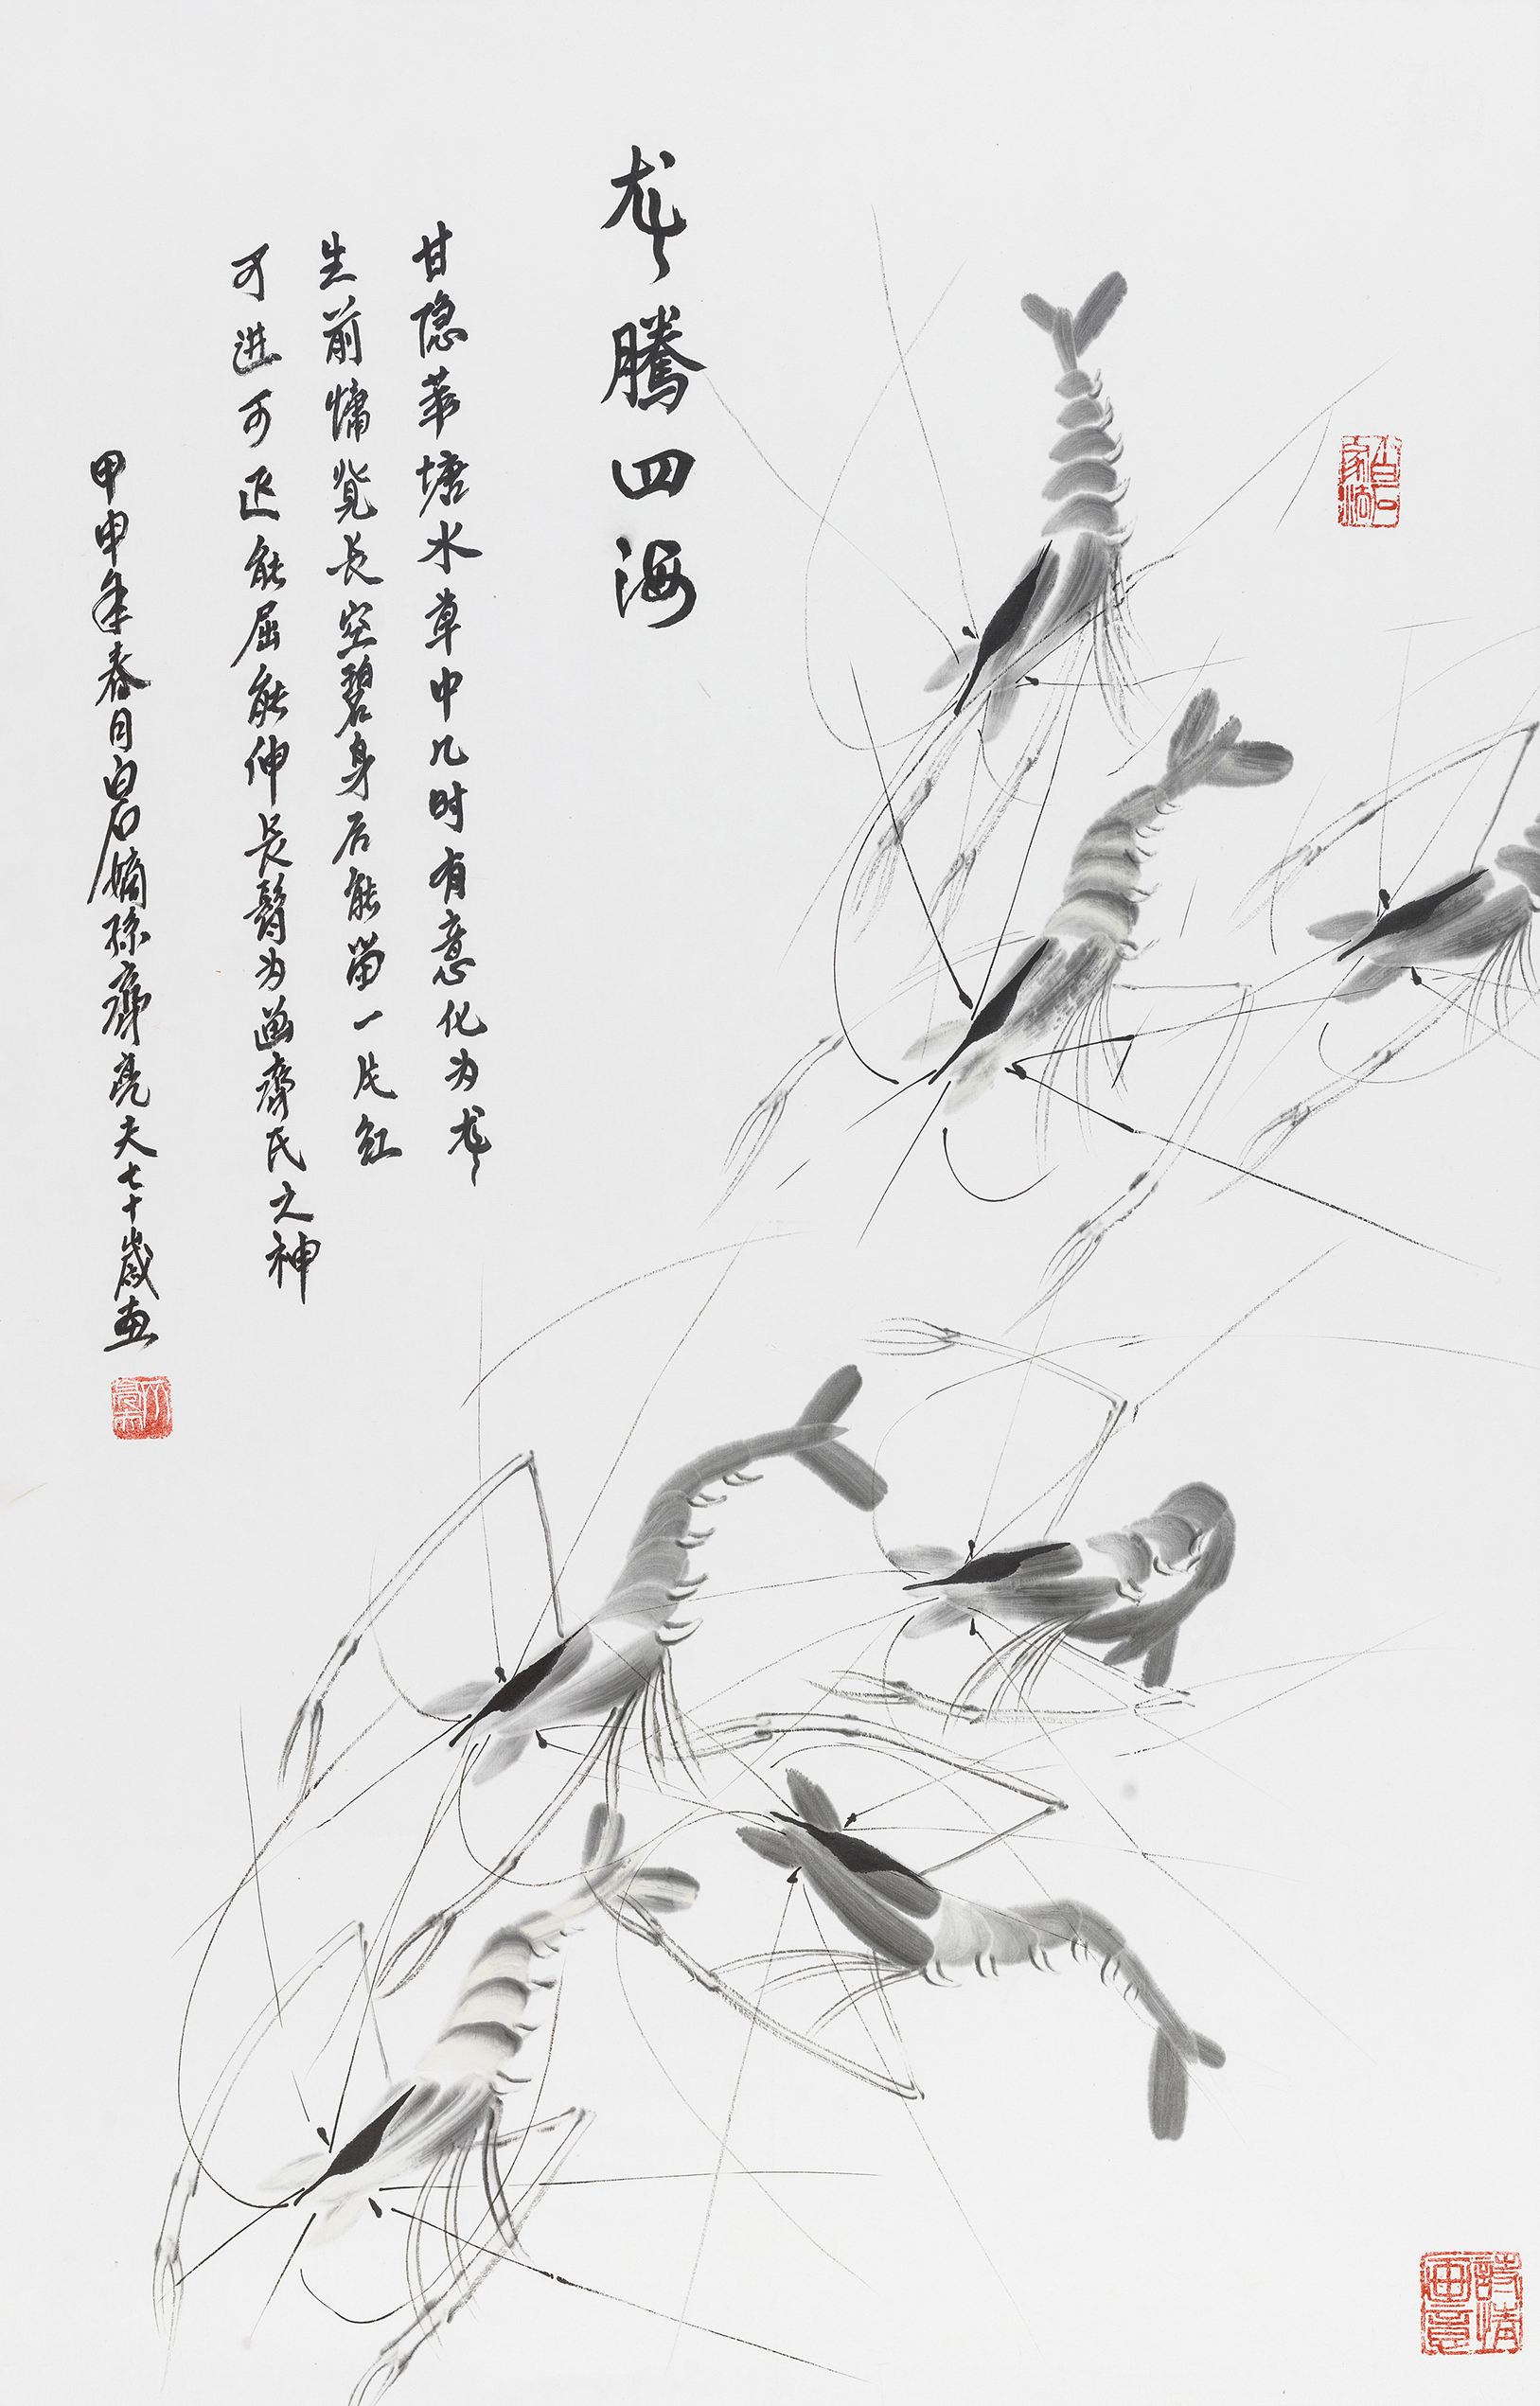 龙腾四海
甘隐塘水草中几时有意化为龙
生前慵觉长空碧身后能留一片红
可进可退能屈能伸长为画齊氏之神
甲申年春月白石嫡孫齊亮夫七十歲画
白石家法
詩情画意